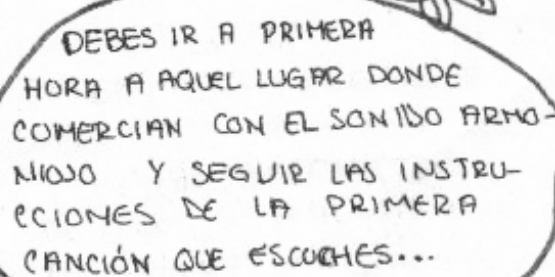 DEBES IR A PRIMERA
HORA A AQUEL LUGAR DONDE
COMERCIAN CON EL SONIDO ARMO-
NIOSO Y SEGUIR LAS INSTRU-
CCIONES DE LA PRIMERA
CANCIÓN QUE ESCUCHES...